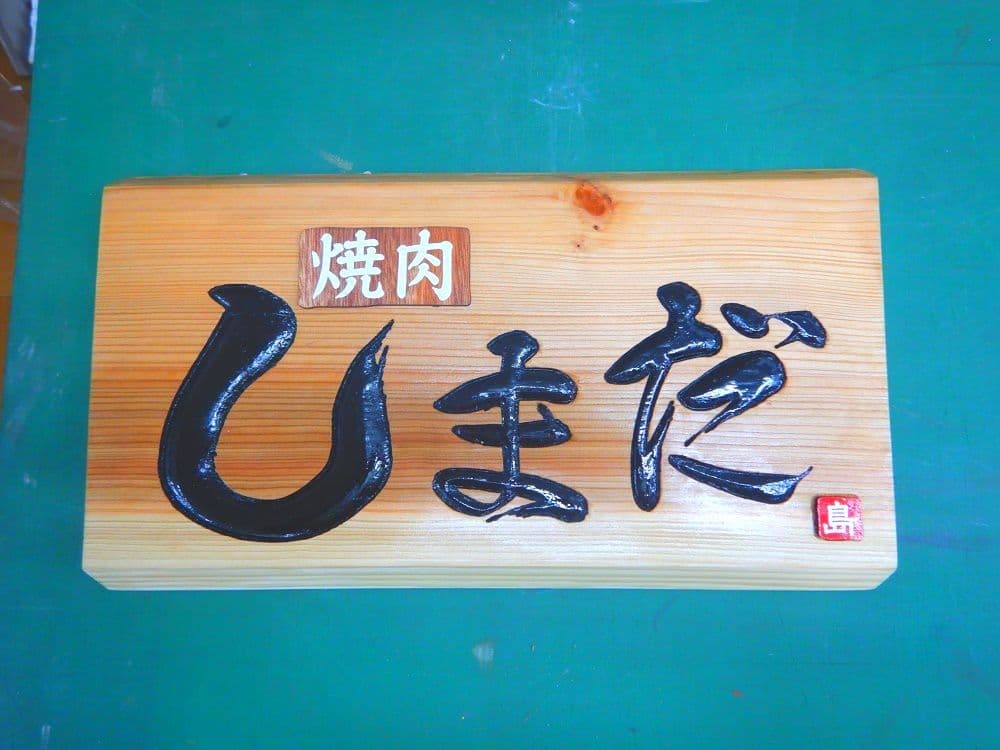 焼肉
しまだ
島